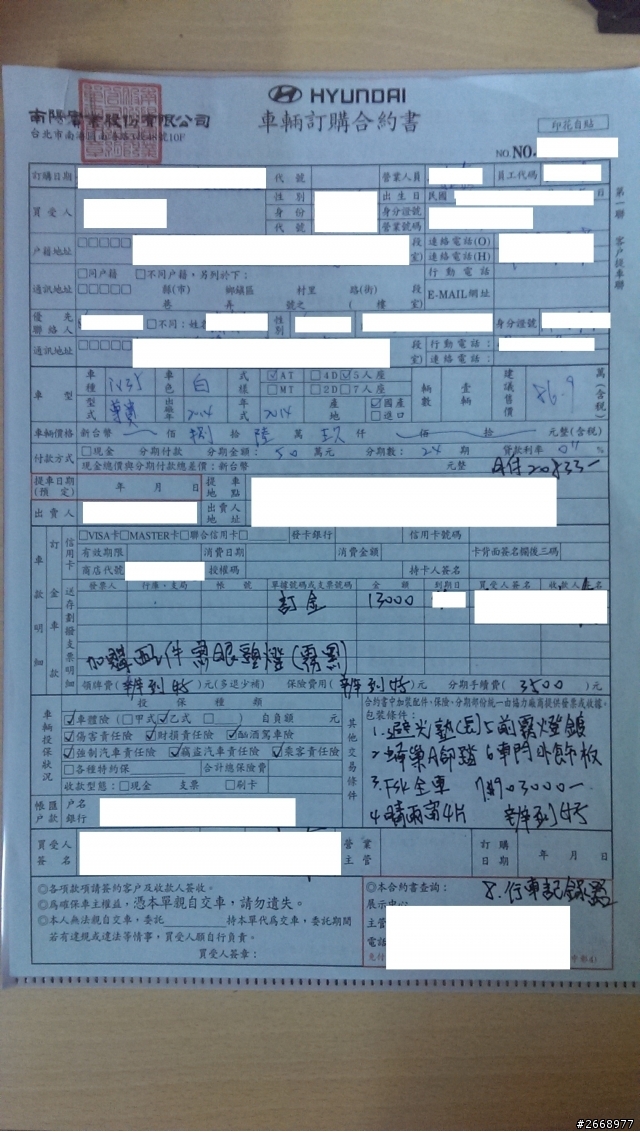 HYUNDAI
南陽實業股份有限公司
車輛訂購合約書
印花自貼
台北市南港
10F
NO. NO.
第一聯 客戶提車聯
訂購日期 代號 營業人員 員工代碼
買受人 性別 出生日 民國 日
身份 身分證號
代號 營業號碼
戶籍地址 段 連絡電話(O)
室) 連絡電話(H)
通訊地址 □同戶籍 □不同戶籍,另列於下: 行動電話
縣(市) 鄉鎮區 村里 路(街) 段 E-MAIL網址
巷 弄 號之 ( 樓 室)
優先聯絡人 □不同:姓 性別 身分證號
通訊地址 段 行動電話:
室) 連絡電話:
車型 車種 ix35 車色 白 式樣 ☑AT □4D ☑5人座 輛數 壹輛 建議售價 86.9 萬(含稅)
□MT □2D □7人座
型式 尊貴 出廠年 2014 年式 2014 產地 ☑國產
□進口
車輛價格 新台幣 佰 捌 拾 陸 萬 玖 仟 佰 拾 元整(含稅)
付款方式 □現金 分期付款 分期金額: 50 萬元 分期數: 24 期 貸款利率 0 %
現金總價與分期付款總差價:新台幣 元整 月付20833-
提車日期(預定) 年 月 日 提車地點
出賣人 出賣人地址
車款明細 訂金 車款 信用卡
□VISA卡□MASTER卡□聯合信用卡□ 發卡銀行 信用卡號碼
有效期限 消費日期 消費金額 卡背面簽名欄後三碼
商店代號 授權碼 持卡人簽名
送存劃撥支票明細
發票人 行庫、支局 帳號 單據號碼或支票號碼 金額 到期日 買受人簽名 收款人簽名
訂金 13000
加購配件 魚眼頭燈(霧黑)
領牌費(辦到好)元(多退少補) 保險費用(辦到好)元 分期手續費( 3500 )元
車輛投保狀況 投保種類
☑車體險(□甲式☑乙式□ ) 自負額 元
☑傷害責任險 ☑財損責任險 ☑酗酒駕車險
☑強制汽車責任險 ☑竊盜汽車責任險 ☑乘客責任險
□各種特約保 合計總保險費
收款型態:□現金 □支票 □刷卡
其他交易條件
合約書中加裝配件、保險、分期部份統一由協力廠商提供發票或收據。
包裝條件:
1.避光墊(鹿)5前霧燈鍍
6車門外飾板
3.FSK全車 7.
4.晴雨窗4片 辦到好
8.行車記錄器
匯款帳戶 戶名
銀行
買受人簽名 營業主管 訂購日期 年 月 日
◎各項款項請簽約客戶及收款人簽收。
◎為確保車主權益,憑本單親自交車,請勿遺失。
◎本人無法親自交車,委託 持本單代為交車,委託期間
若有違規或違法等情事,買受人願自行負責。
買受人簽章:
◎本合約書查詢:
展示中心
主管
電話
#2668977